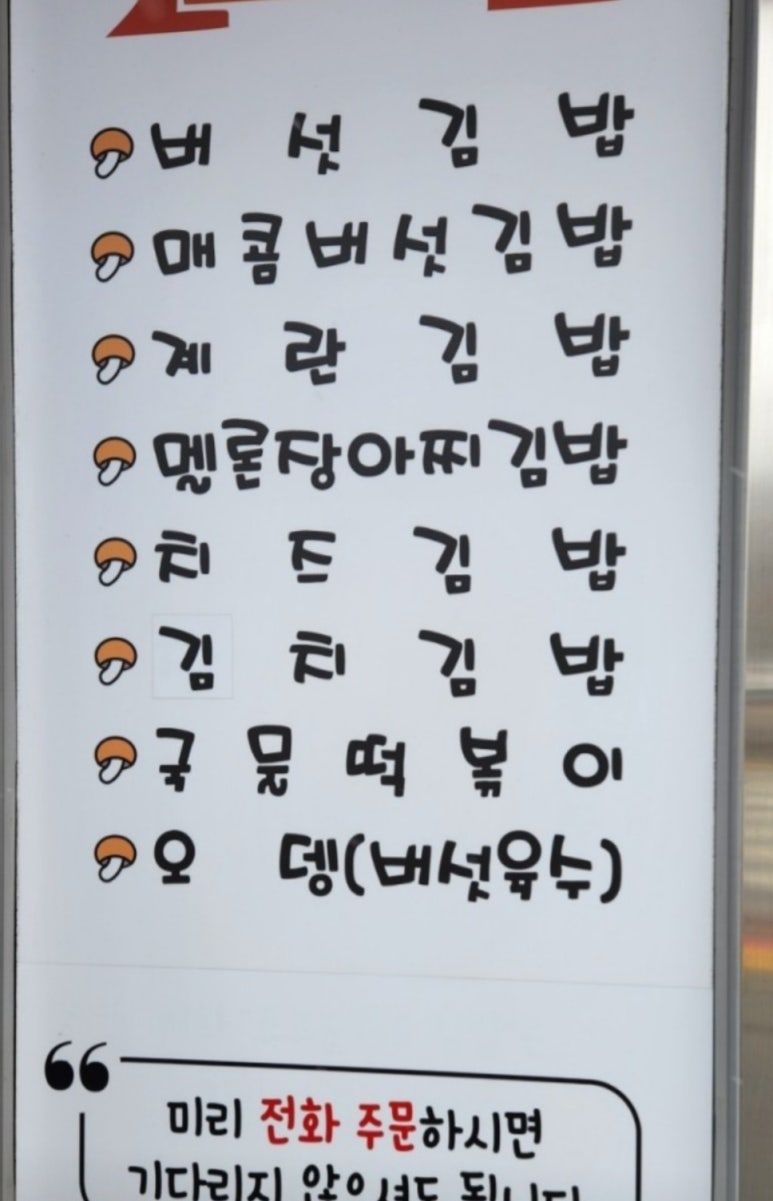 버섯김밥
매콤버섯김밥
계란김밥
멜론장아찌김밥
치즈김밥
김치김밥
국물떡볶이
오뎅(버섯육수)
미리 전화 주문하시면
기다리지 않으셔도 됩니다